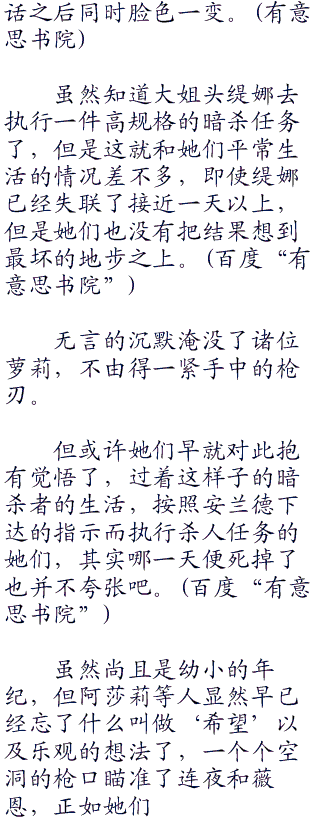 话之后同时脸色一变。(有意
思书院)
虽然知道大姐头缇娜去
执行一件高规格的暗杀任务
了，但是这就和她们平常生
活的情况差不多，即使缇娜
已经失联了接近一天以上，
但是她们也没有把结果想到
最坏的地步之上。(百度“有
意思书院”)
无言的沉默淹没了诸位
萝莉，不由得一紧手中的枪
刃。
但或许她们早就对此抱
有觉悟了，过着这样子的暗
杀者的生活，按照安兰德下
达的指示而执行杀人任务的
她们，其实哪一天便死掉了
也并不夸张吧。(百度“有意
思书院”)
虽然尚且是幼小的年
纪，但阿莎莉等人显然早已
经忘了什么叫做‘希望’以
及乐观的想法了，一个个空
洞的枪口瞄准了连夜和薇
恩，正如她们